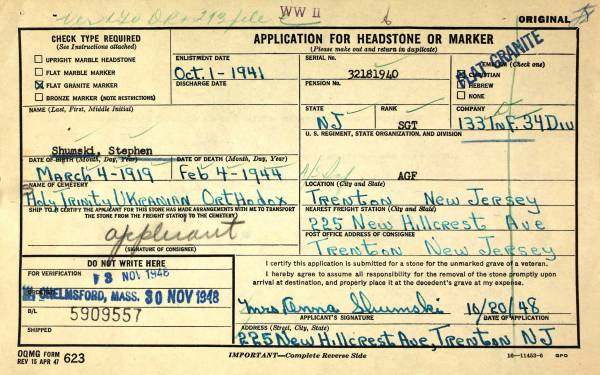 WW II
ORIGINAL
CHECK TYPE REQUIRED
(See Instructions attached)
UPRIGHT MARBLE HEADSTONE
FLAT MARBLE MARKER
FLAT GRANITE MARKER
BRONZE MARKER (NOTE RESTRICTIONS)
APPLICATION FOR HEADSTONE OR MARKER
(Please make out and return in duplicate)
ENLISTMENT DATE
Oct. 1-1941
DISCHARGE DATE
SERIAL No.
32181940
PENSION No.
EMBLEM (Check one)
CHRISTIAN
HEBREW
NONE
FLAT GRANITE
NAME (Last, First, Middle Initial)
Shumski, Stephen
STATE
NJ
RANK
SGT
COMPANY
133 Inf. 34 Div
U. S. REGIMENT, STATE ORGANIZATION, AND DIVISION
AGF
DATE OF BIRTH (Month, Day, Year)
March 4-1919
DATE OF DEATH (Month, Day, Year)
Feb 4-1944
NAME OF CEMETERY
Holy Trinity Ukranian Orthodox
LOCATION (City and State)
Trenton New Jersey
SHIP TO (I CERTIFY THE APPLICANT FOR THIS STONE HAS MADE ARRANGEMENTS WITH ME TO TRANSPORT THE STONE FROM THE FREIGHT STATION TO THE CEMETERY)
applicant
(SIGNATURE OF CONSIGNEE)
NEAREST FREIGHT STATION (City and State)
225 New Hillcrest Ave
POST OFFICE ADDRESS OF CONSIGNEE
Trenton New Jersey
DO NOT WRITE HERE
FOR VERIFICATION
13 NOV 1948
CHELMSFORD, MASS. 30 NOV 1948
B/L
5909557
SHIPPED
I certify this application is submitted for a stone for the unmarked grave of a veteran.
I hereby agree to assume all responsibility for the removal of the stone promptly upon
arrival at destination, and properly place it at the decedent's grave at my expense.
Mrs Anna Shumski
10/20/48
APPLICANT'S SIGNATURE
DATE
ADDRESS (Street, City, State)
225 New Hillcrest Ave, Trenton NJ
OQMG FORM
REV 15 APR 47
623
IMPORTANT—Complete Reverse Side
16—11453-6 GPO